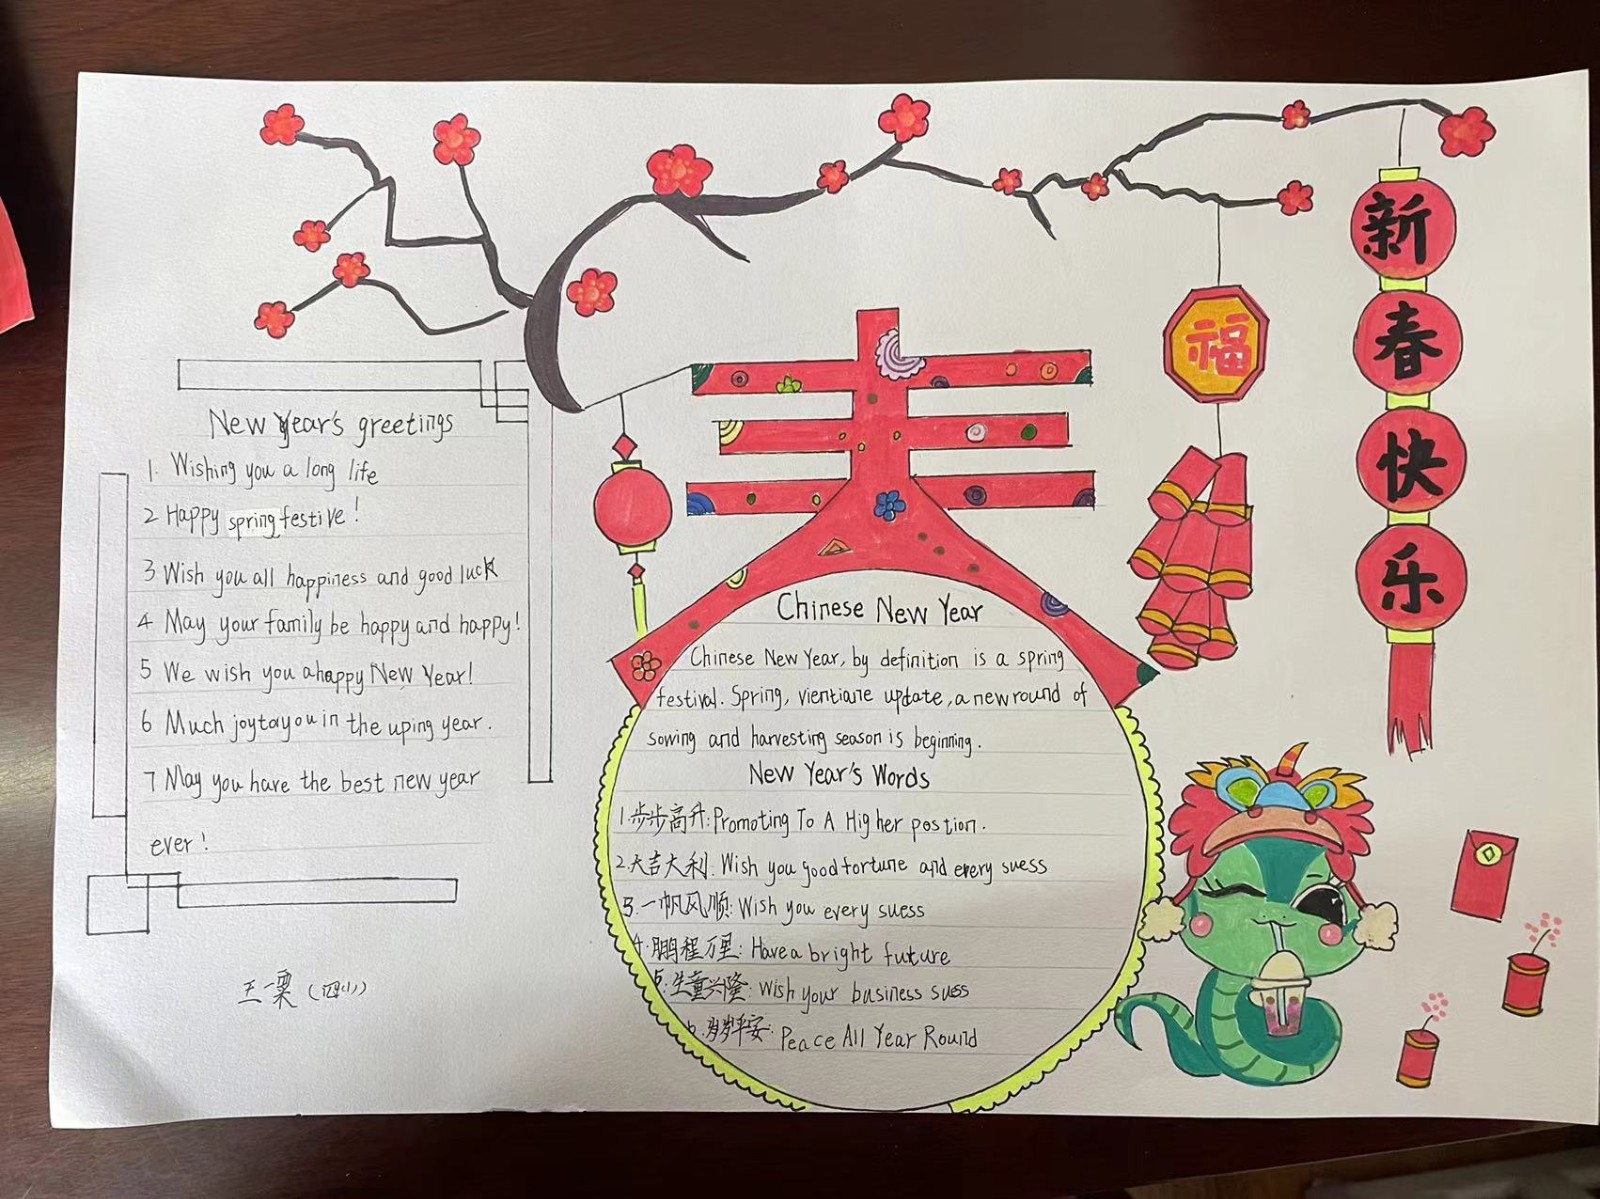 New Year's greetings
1. Wishing you a long life
2 Happy spring festive!
3 Wish you all happiness and good luck
4 May your family be happy and happy!
5 We wish you a happy New Year!
6 Much joy to you in the uping year.
7 May you have the best new year
ever!
王一栗(四小)
春
Chinese New Year
Chinese New Year, by definition is a spring
festival. Spring, vientiane update, a new round of
sowing and harvesting season is beginning.
New Year's Words
1.步步高升:Promoting To A Higher postion.
2.大吉大利. Wish you good fortune and every suess
3.一帆风顺: Wish you every suess
4.鹏程万里: Have a bright future
5.生意兴隆: Wish your business suess
6.岁岁平安: Peace All Year Round
福
新
春
快
乐